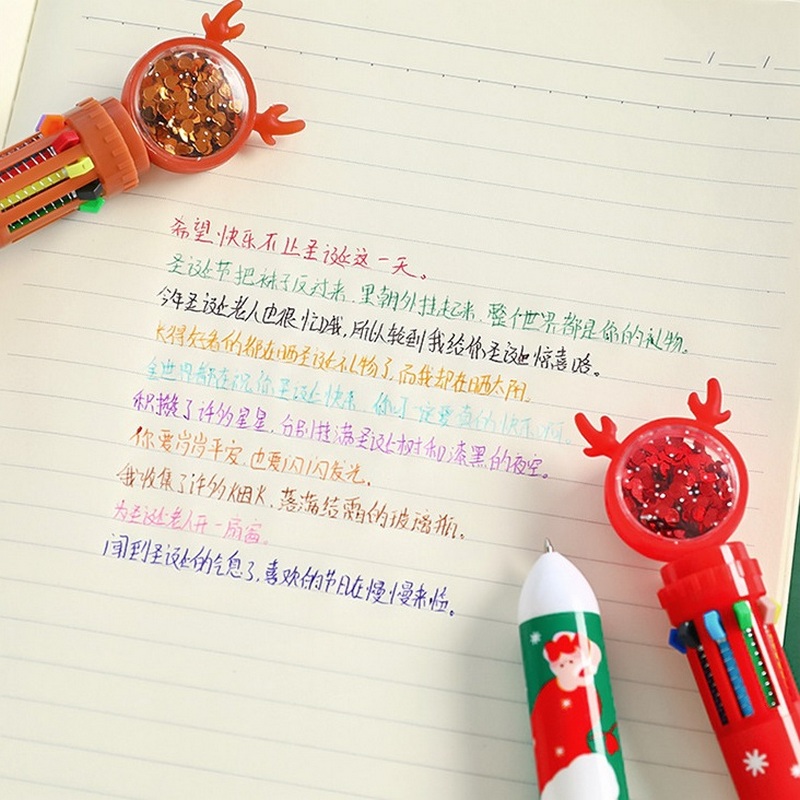 希望快乐不止圣诞这一天。
圣诞节把袜子反过来,里朝外挂起来,整个世界都是你的礼物。
今年圣诞老人也很忙哦,所以轮到我给你圣诞惊喜咯。
长得好看的都在晒圣诞礼物了,而我却在晒太阳。
全世界都在祝你圣诞快乐,你一定要真的快乐啊。
积攒了许多星星,分别挂满圣诞树和漆黑的夜空。
你要岁岁平安,也要闪闪发光。
我收集了许多烟火,落满结霜的玻璃瓶。
为圣诞老人开一扇窗。
闻到圣诞的气息了,喜欢的节日在慢慢来临。